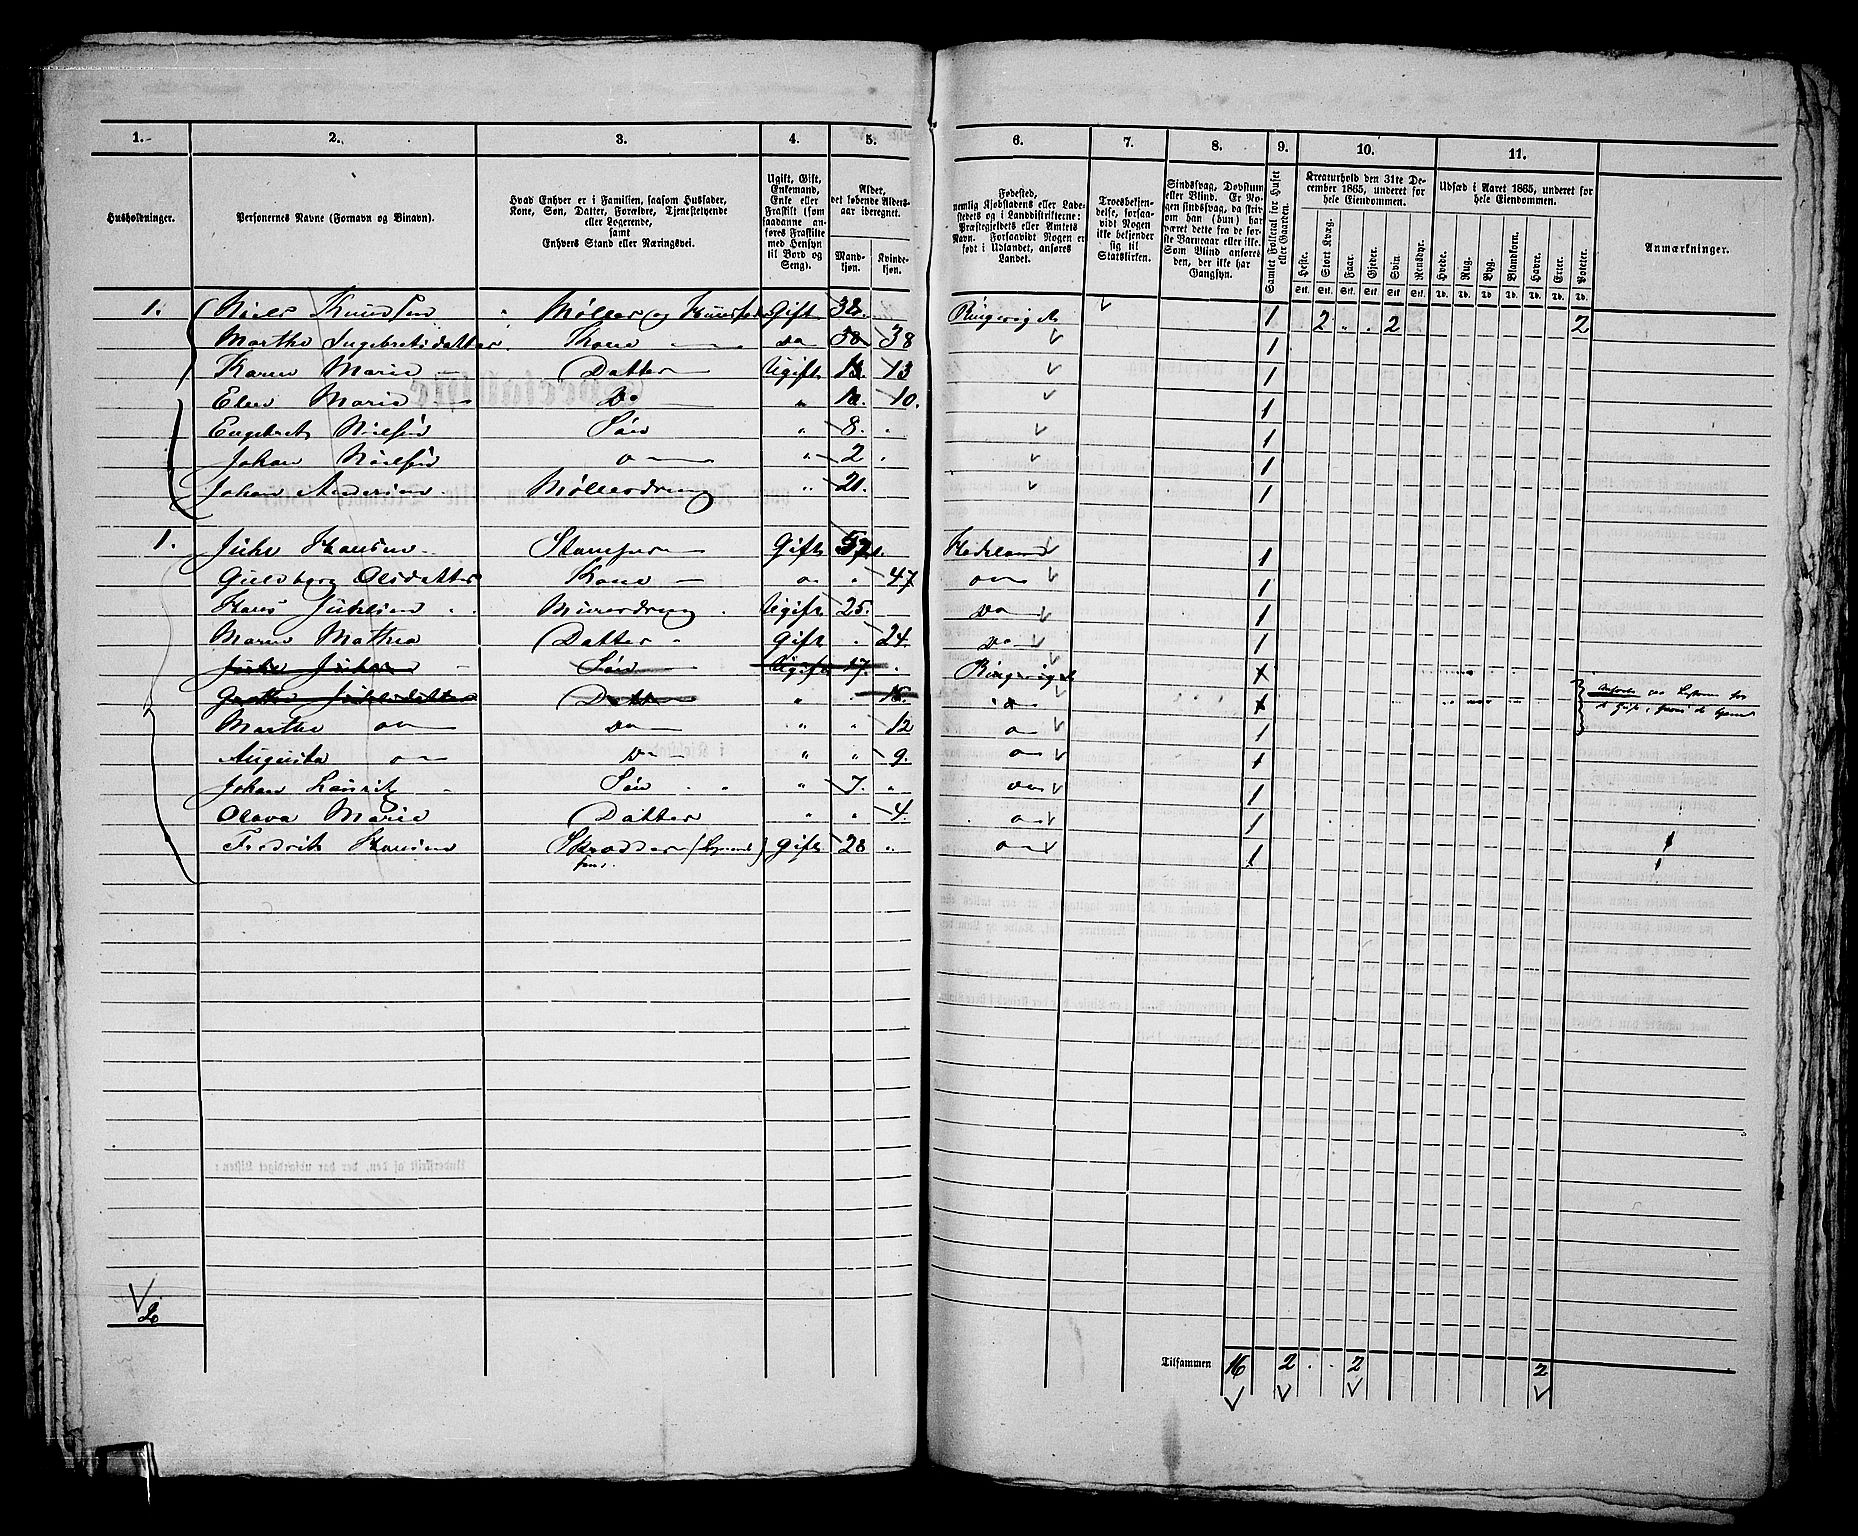 1. 2. 3. 4. 5. 6. 7. 8. 9. 10. 11.
Husholdninger.
Personernes Navne (Fornavn og Binavn).
Hvad Enhver er i Familien, saasom Husfader,
Kone, Søn, Datter, Forældre, Tjenestetyende
eller Logerende,
samt
Enhvers Stand eller Næringsvei.
Ugift, Gift,
Enkemand,
Enke eller
Fraskilt (som
saadanne an-
føres Fraskilte
med Hensyn
til Bord og
Seng).
Alder,
det løbende Alders-
aar iberegnet.
Mand-
kjøn.
Kvinde-
kjøn.
Fødested,
nemlig Kjøbstadens eller Lade-
stedets og i Landdistrikterne:
Præstegjeldets eller Amtets
Navn. Forsaavidt Nogen er
født i Udlandet, anføres
Landet.
Troesbekjen-
delse, forsaa-
vidt Nogen
ikke bekjender
sig til
Statskirken.
Sindssvag, Døvstum
eller Blind. Er No-
gen sindssvag, da skri-
ves om han (hun) har
været dette fra de før-
ste Barneaar eller ikke.
Som Blind anføres
den, der ikke har
Gangsyn.
Samlet Folketal for Huset
eller Gaarden.
Kreaturhold den 31te De-
cember 1865, underet for
hele Eiendommen.
Heste. Stort Kvæg. Faar. Gjeder. Svin. Rensdyr.
Stk. Stk. Stk. Stk. Stk. Stk.
Udsæd i Aaret 1865, underet for
hele Eiendommen.
Hvede. Rug. Byg. Blandkorn. Havre. Erter. Poteter.
Td. Td. Td. Td. Td. Td. Td.
Anmærkninger.
1. Niels Knudsen Møller og Gift 38. Ringerriget 1 2 2 2
Marthe Ingebretsdatter Kone do 38 1
Karen Marie Datter Ugift 13 1
Elen Marie Do " 10. 1
Engebret Nielsen Søn " 8. 1
Johan Nielsen " 2 1
Johan Andersen Møllerdreng " 21. 1
1. Juhl Hansen Gift Hadeland 1
Guldborg Olsdatter Kone " 47 1
Hans Juhlsen Murerdreng Ugift 25. Do 1
Maren Mathea Datter Gift 24. Do 1
Søn Ugift 17. Ringerriget x
Datter " x
Marthe do " 12 1
Augusta Do " 9. 1
Johan Henrik Søn " 7. do 1
Olava Marie Datter " 4. 1
Fredrik Hansen Skrædder Gift 28 " 1
Tilsammen 16 2 2 2